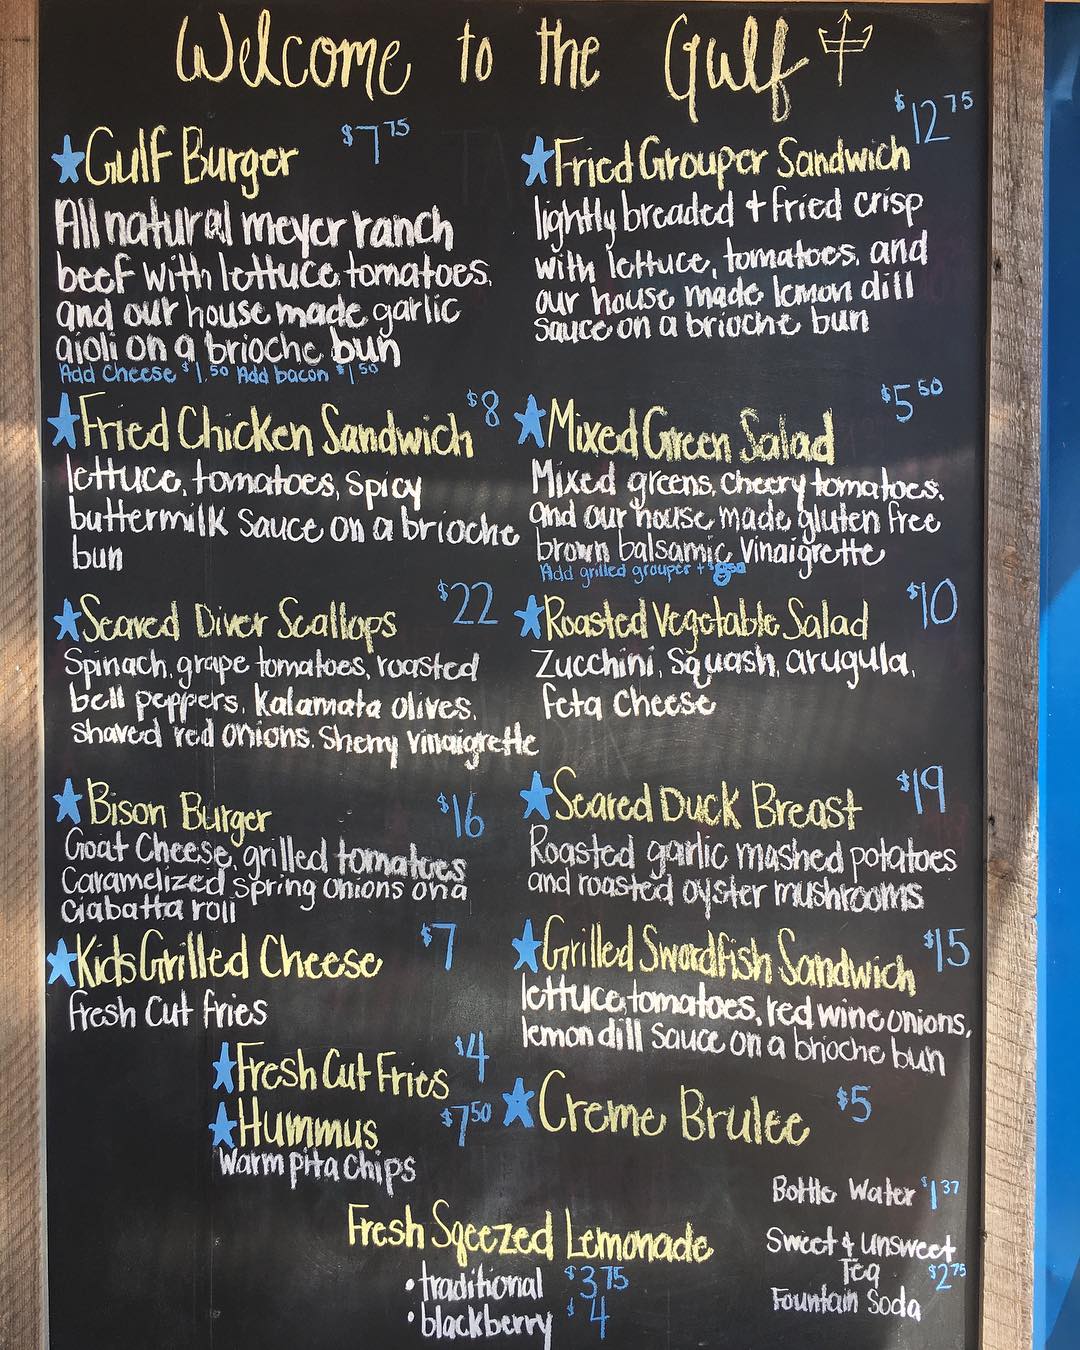 Welcome to the Gulf
★Gulf Burger $7 75
All natural meyer ranch
beef with lettuce, tomatoes,
and our house made garlic
aioli on a brioche bun
Add Cheese $1.50 Add bacon $1 50
★Fried Chicken Sandwich $8
lettuce, tomatoes, spicy
buttermilk sauce on a brioche
bun
★Seared Diver Scallops $22
Spinach, grape tomatoes, roasted
bell peppers, Kalamata olives,
shaved red onions. Sherry Vinaigrette
★Bison Burger $16
Goat Cheese, grilled tomatoes
Caramelized spring onions on a
ciabatta roll
★Kids Grilled Cheese $7
Fresh Cut Fries
★Fresh Cut Fries $4
★Hummus $7 50
Warm pita chips
★Fried Grouper Sandwich $12 75
lightly breaded + fried crisp
with lettuce, tomatoes, and
our house made lemon dill
sauce on a brioche bun
★Mixed Green Salad $5 50
Mixed greens, cheery tomatoes,
and our house made gluten free
brown balsamic Vinaigrette
Add grilled grouper +
★Roasted Vegetable Salad $10
Zucchini, Squash, arugula,
feta Cheese
★Seared Duck Breast $19
Roasted garlic mashed potatoes
and roasted oyster mushrooms
★Grilled Swordfish Sandwich $15
lettuce, tomatoes, red wine onions,
lemon dill sauce on a brioche bun
★Creme Brulee $5
Fresh Sqeezed Lemonade
• traditional $3 75
• blackberry $4
Bottle Water $1 37
Sweet & Unsweet
Tea $2 75
Fountain Soda